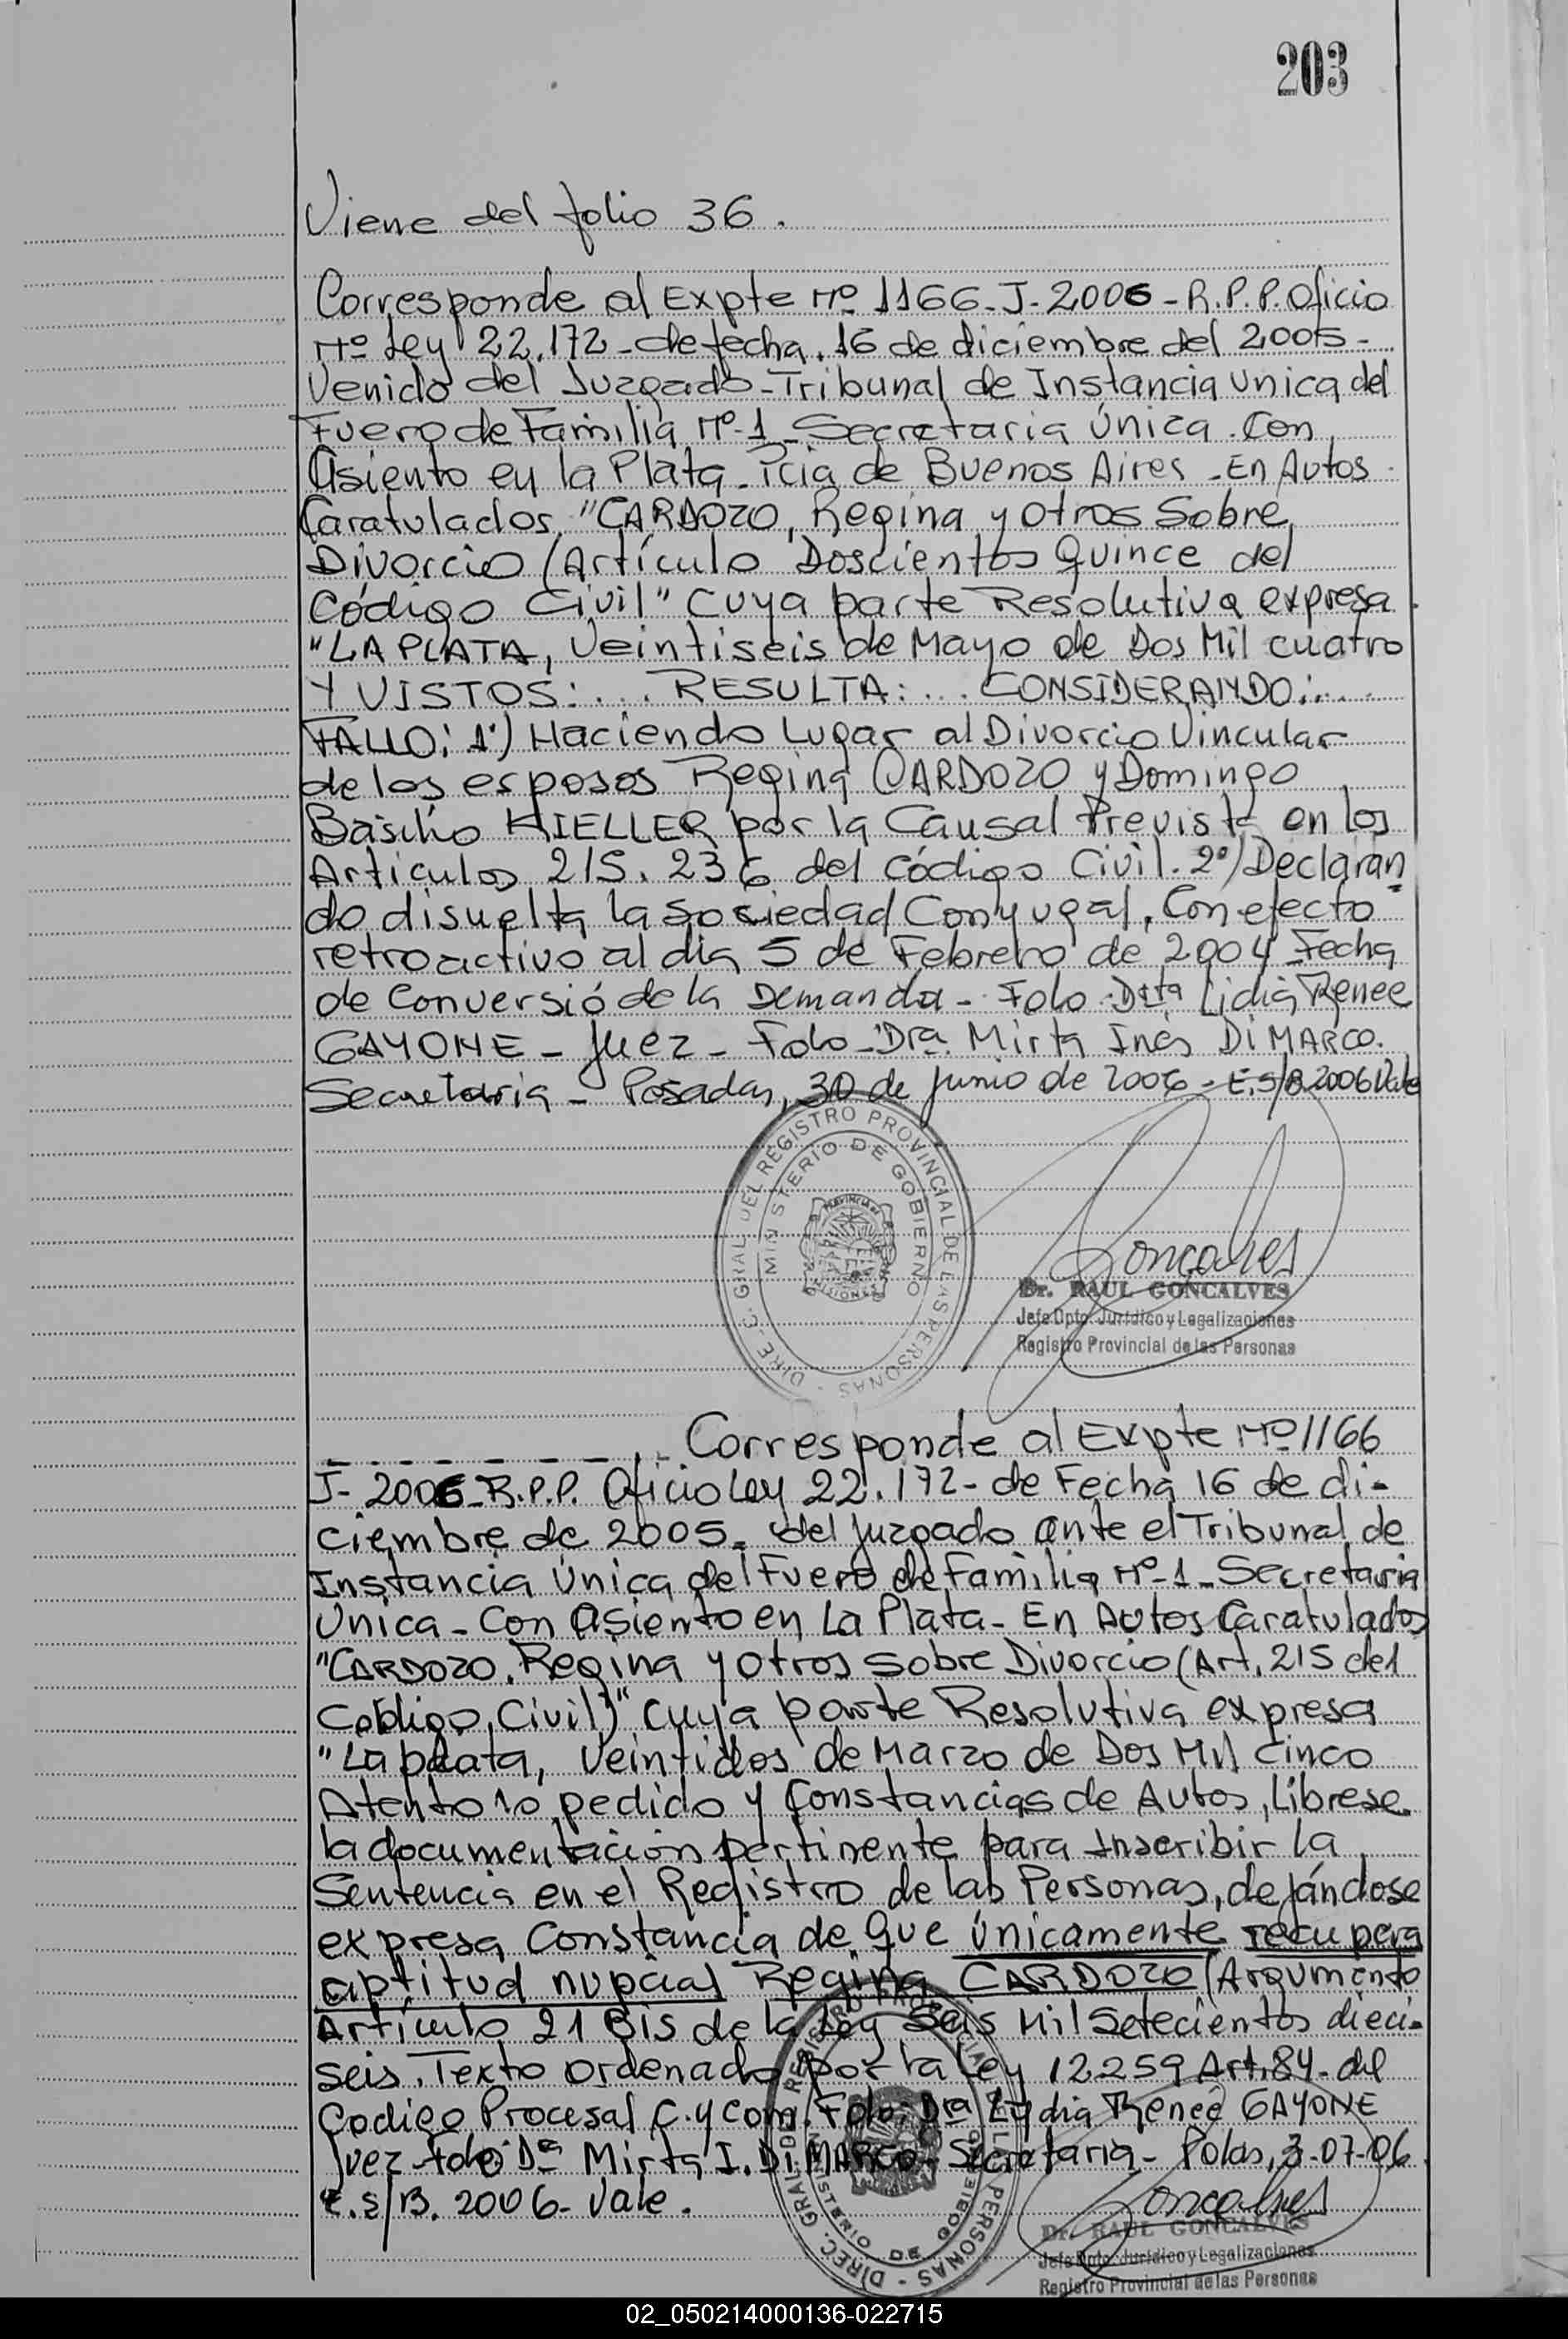 203
Viene del folio 36.
Corresponde al Expte Nº 1166-J-2006-R.P.P. Oficio
Nº Ley 22.172-de fecha. 16 de diciembre del 2005-
Venido del Juzgado-Tribunal de Instancia Unica del
Fuero de Familia Nº-1-Secretaria Única. Con
Asiento en la Plata-Pcia de Buenos Aires-En Autos
Caratulados, "CARDOZO, Regina y otros Sobre
Divorcio (Artículo Doscientos Quince del
Código Civil" Cuya parte Resolutiva expresa
"LA PLATA, Veintiseis de Mayo de Dos Mil cuatro
Y VISTOS:... RESULTA:... CONSIDERANDO:...
FALLO: 1º) Haciendo Lugar al Divorcio Vincular
de los esposos Regina CARDOZO y Domingo
Basilio KIELLER por la Causal Prevista en los
Articulos 215. 236 del Código Civil. 2º) Declaran
do disuelta la Sociedad Conyugal, Con efecto
retroactivo al dia 5 de Febrero de 2004-Fecha
de Conversió de la Demanda- Fdo. Dra Lidia Renee
GAYONE-Juez-Fdo-Dra. Mirta Inés DI MARCO.
Secretaria- Posadas, 30 de Junio de 2006-E.S/B.2006 Vale
DIREC. GRAL. DEL REGISTRO PROVINCIAL DE LAS PERSONAS
MINISTERIO DE GOBIERNO
PROVINCIA DE MISIONES
Goncalves
Dr. RAUL GONCALVES
Jefe Dpto. Jurídico y Legalizaciones
Registro Provincial de las Personas
Corresponde al Expte Nº 1166
J-2006-R.P.P. Oficio Ley 22.172-de Fecha 16 de di-
ciembre de 2005- del Juzgado ante el Tribunal de
Instancia Única del Fuero de Familia Nº-1-Secretaria
Única-Con Asiento en La Plata-En Autos Caratulados
"CARDOZO, Regina y otros Sobre Divorcio (Art. 215 del
Codigo, Civil)" Cuya parte Resolutiva expresa
"La plata, Veintidos de Marzo de Dos Mil Cinco
Atento lo pedido y Constancias de Autos, Librese
la documentación pertinente para Inscribir la
Sentencia en el Registro de las Personas, dejándose
expresa Constancia de Que únicamente recupera
aptitud nupcial Regina CARDOZO (Argumento
Artículo 21 Bis de la Ley Seis Mil Setecientos dieci-
seis. Texto ordenado por la Ley 12.259 Art. 84-del
Codigo Procesal C. y Com. Fdo: Dra Lydia Reneé GAYONE
Juez-Fdo Dra Mirta I. DI MARCO-Secretaria- Pdas, 3-07-06
E.S/B. 2006-Vale.
DIREC. GRAL. DEL REGISTRO PROVINCIAL DE LAS PERSONAS
MINISTERIO DE GOBIERNO
Goncalves
Dr. RAUL GONCALVES
Jefe Dpto. Jurídico y Legalizaciones
Registro Provincial de las Personas
02_050214000136-022715